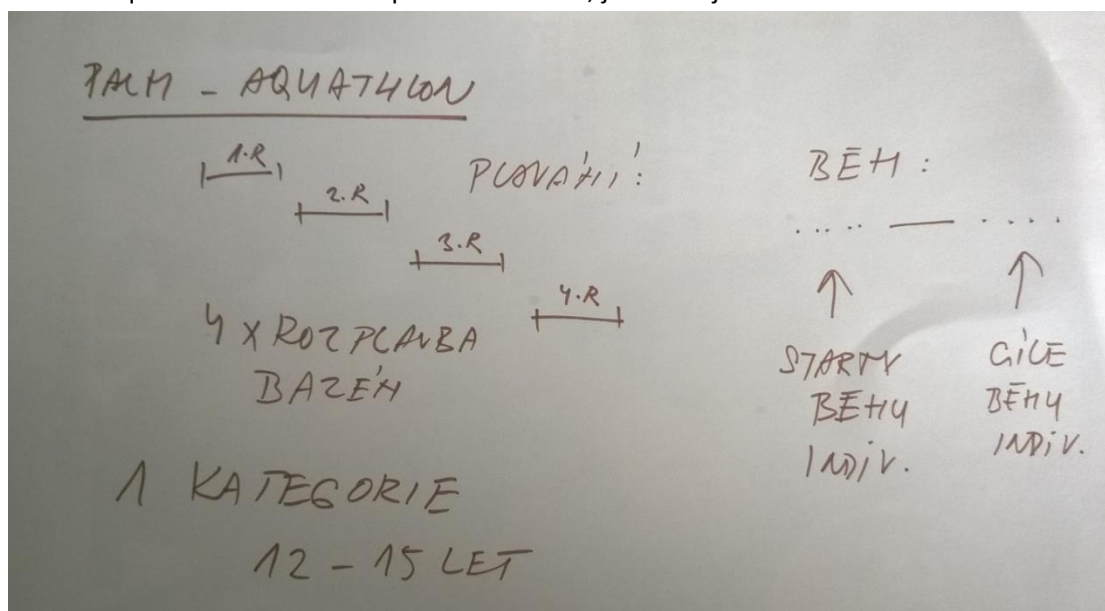 PALM - AQUATHLON
1.R
2.R
3.R
4.R
PLAVÁNÍ:
4 X ROZPLAVBA
BAZÉN
1 KATEGORIE
12 - 15 LET
BĚH:
.... — ....
STARTY
BĚHU
INDIV.
CÍLE
BĚHU
INDIV.